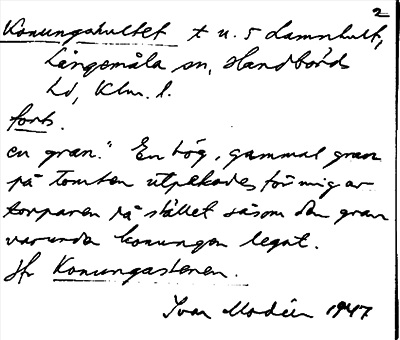 2
Konungshultet t u. 5 Lammhult,
Långemåla sn, Handbörds
hd, Klm. l.
forts.
en gran." En hög, gammal gran
på tomten utpekades för mig av
torparen på stället såsom den gran
varunder konungen legat.
Jfr Konungastenen.
Ivar Modéer 1947